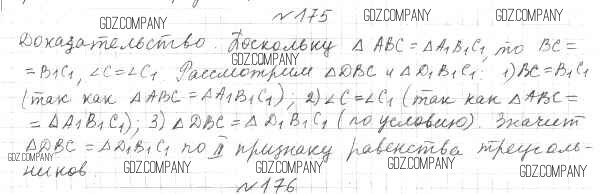 №175
GDZ.COMPANY GDZ.COMPANY GDZ.COMPANY
Доказательство. Поскольку △ABC=△A₁B₁C₁, то BC=
GDZ.COMPANY
=B₁C₁, ∠C=∠C₁. Рассмотрим △DBC и △D₁B₁C₁: 1) BC=B₁C₁
(так как △ABC=△A₁B₁C₁); 2) ∠C=∠C₁ (так как △ABC=
=△A₁B₁C₁); 3) △DBC=△D₁B₁C₁ (по условию). Значит
△DBC=△D₁B₁C₁ по II признаку равенства треуголь-
GDZ.COMPANY
ников. GDZ.COMPANY GDZ.COMPANY GDZ.COMPANY GDZ.COMPANY
№176